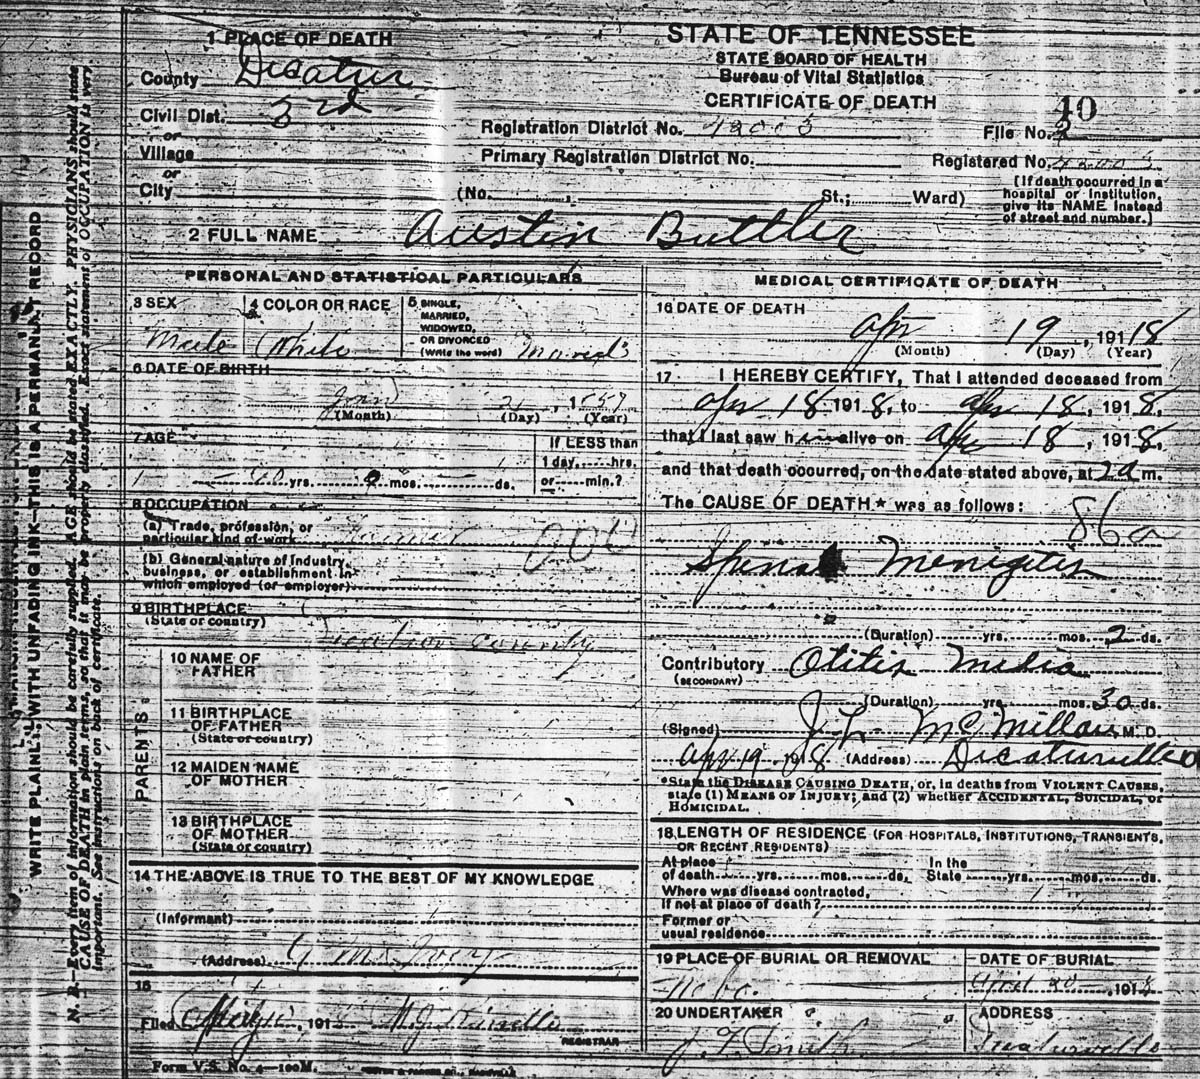 1 PLACE OF DEATH
County Decatur
Civil Dist. 3rd
or
Village
or
City
STATE OF TENNESSEE
STATE BOARD OF HEALTH
Bureau of Vital Statistics
CERTIFICATE OF DEATH
Registration District No. 42003
File No. 40
Primary Registration District No.
Registered No.
(No. , St.; Ward)
(If death occurred in a
hospital or institution,
give its NAME instead
of street and number.)
2 FULL NAME Austin Buttler
PERSONAL AND STATISTICAL PARTICULARS
3 SEX
Male
4 COLOR OR RACE
White
5 SINGLE,
MARRIED,
WIDOWED,
OR DIVORCED
(Write the word)
6 DATE OF BIRTH
(Month) (Day) , 1 (Year)
7 AGE
yrs. mos. ds.
If LESS than
1 day, hrs.
or min.?
8 OCCUPATION
(a) Trade, profession, or
particular kind of work Farmer
(b) General nature of industry,
business, or establishment in
which employed (or employer)
9 BIRTHPLACE
(State or country)
Decatur County
PARENTS
10 NAME OF
FATHER
11 BIRTHPLACE
OF FATHER
(State or country)
12 MAIDEN NAME
OF MOTHER
13 BIRTHPLACE
OF MOTHER
(State or country)
14 THE ABOVE IS TRUE TO THE BEST OF MY KNOWLEDGE
(Informant)
(Address)
15
Filed , 191
REGISTRAR
Form V.S. No. 4—100M.
MEDICAL CERTIFICATE OF DEATH
16 DATE OF DEATH
Apr 19 , 191 18
(Month) (Day) (Year)
17 I HEREBY CERTIFY, That I attended deceased from
Apr 18 191 8, to Apr 18, 191 8,
that I last saw h im alive on Apr 18, 191 8,
and that death occurred, on the date stated above, at 2 a m.
The CAUSE OF DEATH* was as follows:
86a
Spinal Menigitis
(Duration) yrs. mos. 2 ds.
Contributory Otitis Media
(SECONDARY)
(Duration) yrs. mos. 30 ds.
(Signed) J L McMillan M. D.
Apr 19 191 8 (Address) Decaturville
*State the DISEASE CAUSING DEATH, or, in deaths from VIOLENT CAUSES,
state (1) MEANS OF INJURY; and (2) whether ACCIDENTAL, SUICIDAL, or
HOMICIDAL.
18 LENGTH OF RESIDENCE (FOR HOSPITALS, INSTITUTIONS, TRANSIENTS,
OR RECENT RESIDENTS)
At place
of death yrs. mos. ds.
In the
State yrs. mos. ds.
Where was disease contracted,
If not at place of death?
Former or
usual residence
19 PLACE OF BURIAL OR REMOVAL
Nebo
DATE OF BURIAL
April 20 , 191 8
20 UNDERTAKER
J. T. Smith
ADDRESS
Decaturville
WRITE PLAINLY, WITH UNFADING INK—THIS IS A PERMANENT RECORD
N. B.—Every item of information should be carefully supplied. AGE should be stated EXACTLY. PHYSICIANS should state
CAUSE OF DEATH in plain terms, so that it may be properly classified. Exact statement of OCCUPATION is very
important. See instructions on back of certificate.